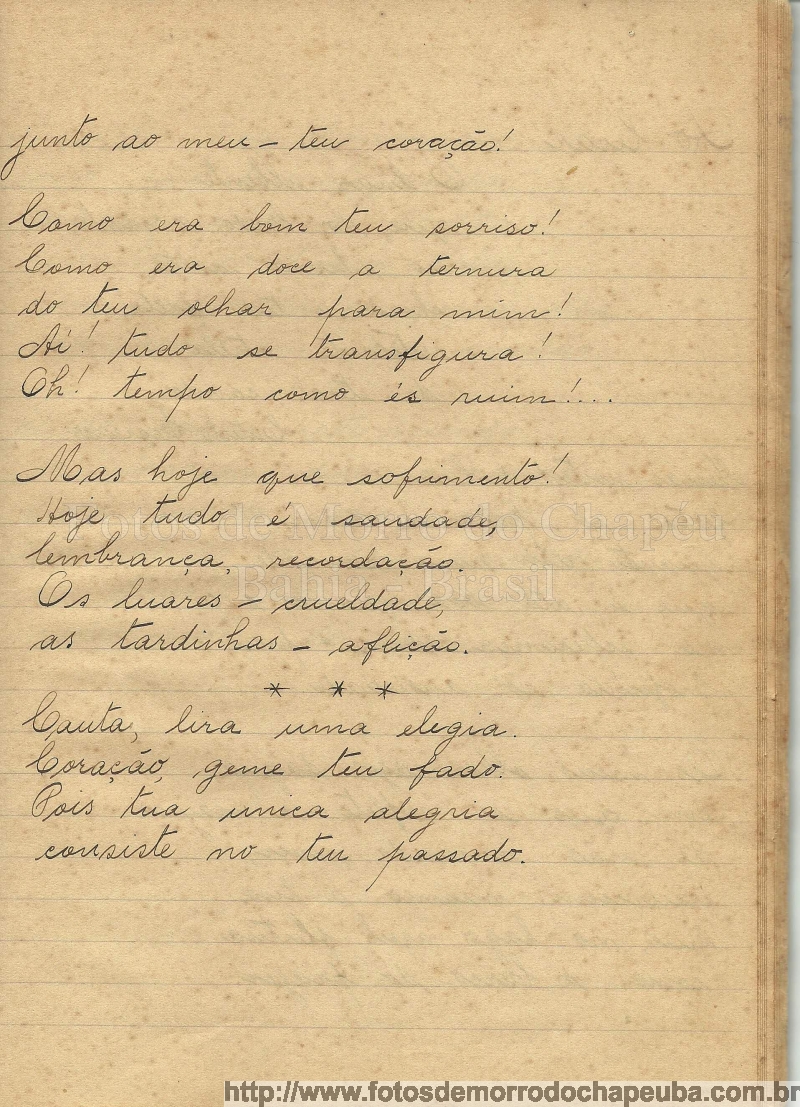 junto ao meu – teu coração!
Como era bom teu sorriso!
Como era doce a ternura
do teu olhar para mim!
Aí! tudo se transfigura!
Oh! tempo como és ruim!...
Mas hoje que sofrimento!
Hoje tudo é saudade,
Fotos de Morro do Chapéu
lembrança, recordação.
Bahia - Brasil
Os luares – crueldade,
as tardinhas – aflição.
* * *
Canta, lira uma elegia.
Coração, geme teu fado.
Pois tua unica alegria
consiste no teu passado.
http://www.fotosdemorrodochapeuba.com.br